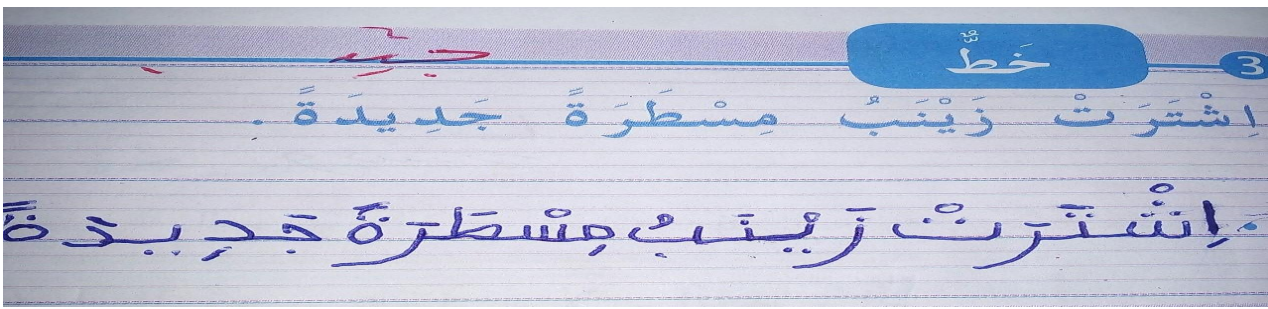 3 خَطٌّ
جيد
اِشْتَرَتْ زَيْنَبُ مِسْطَرَةً جَدِيدَةً .
اِشْتَرَتْ زَيْنَبُ مِسْطَرَةً جَدِيدَةً